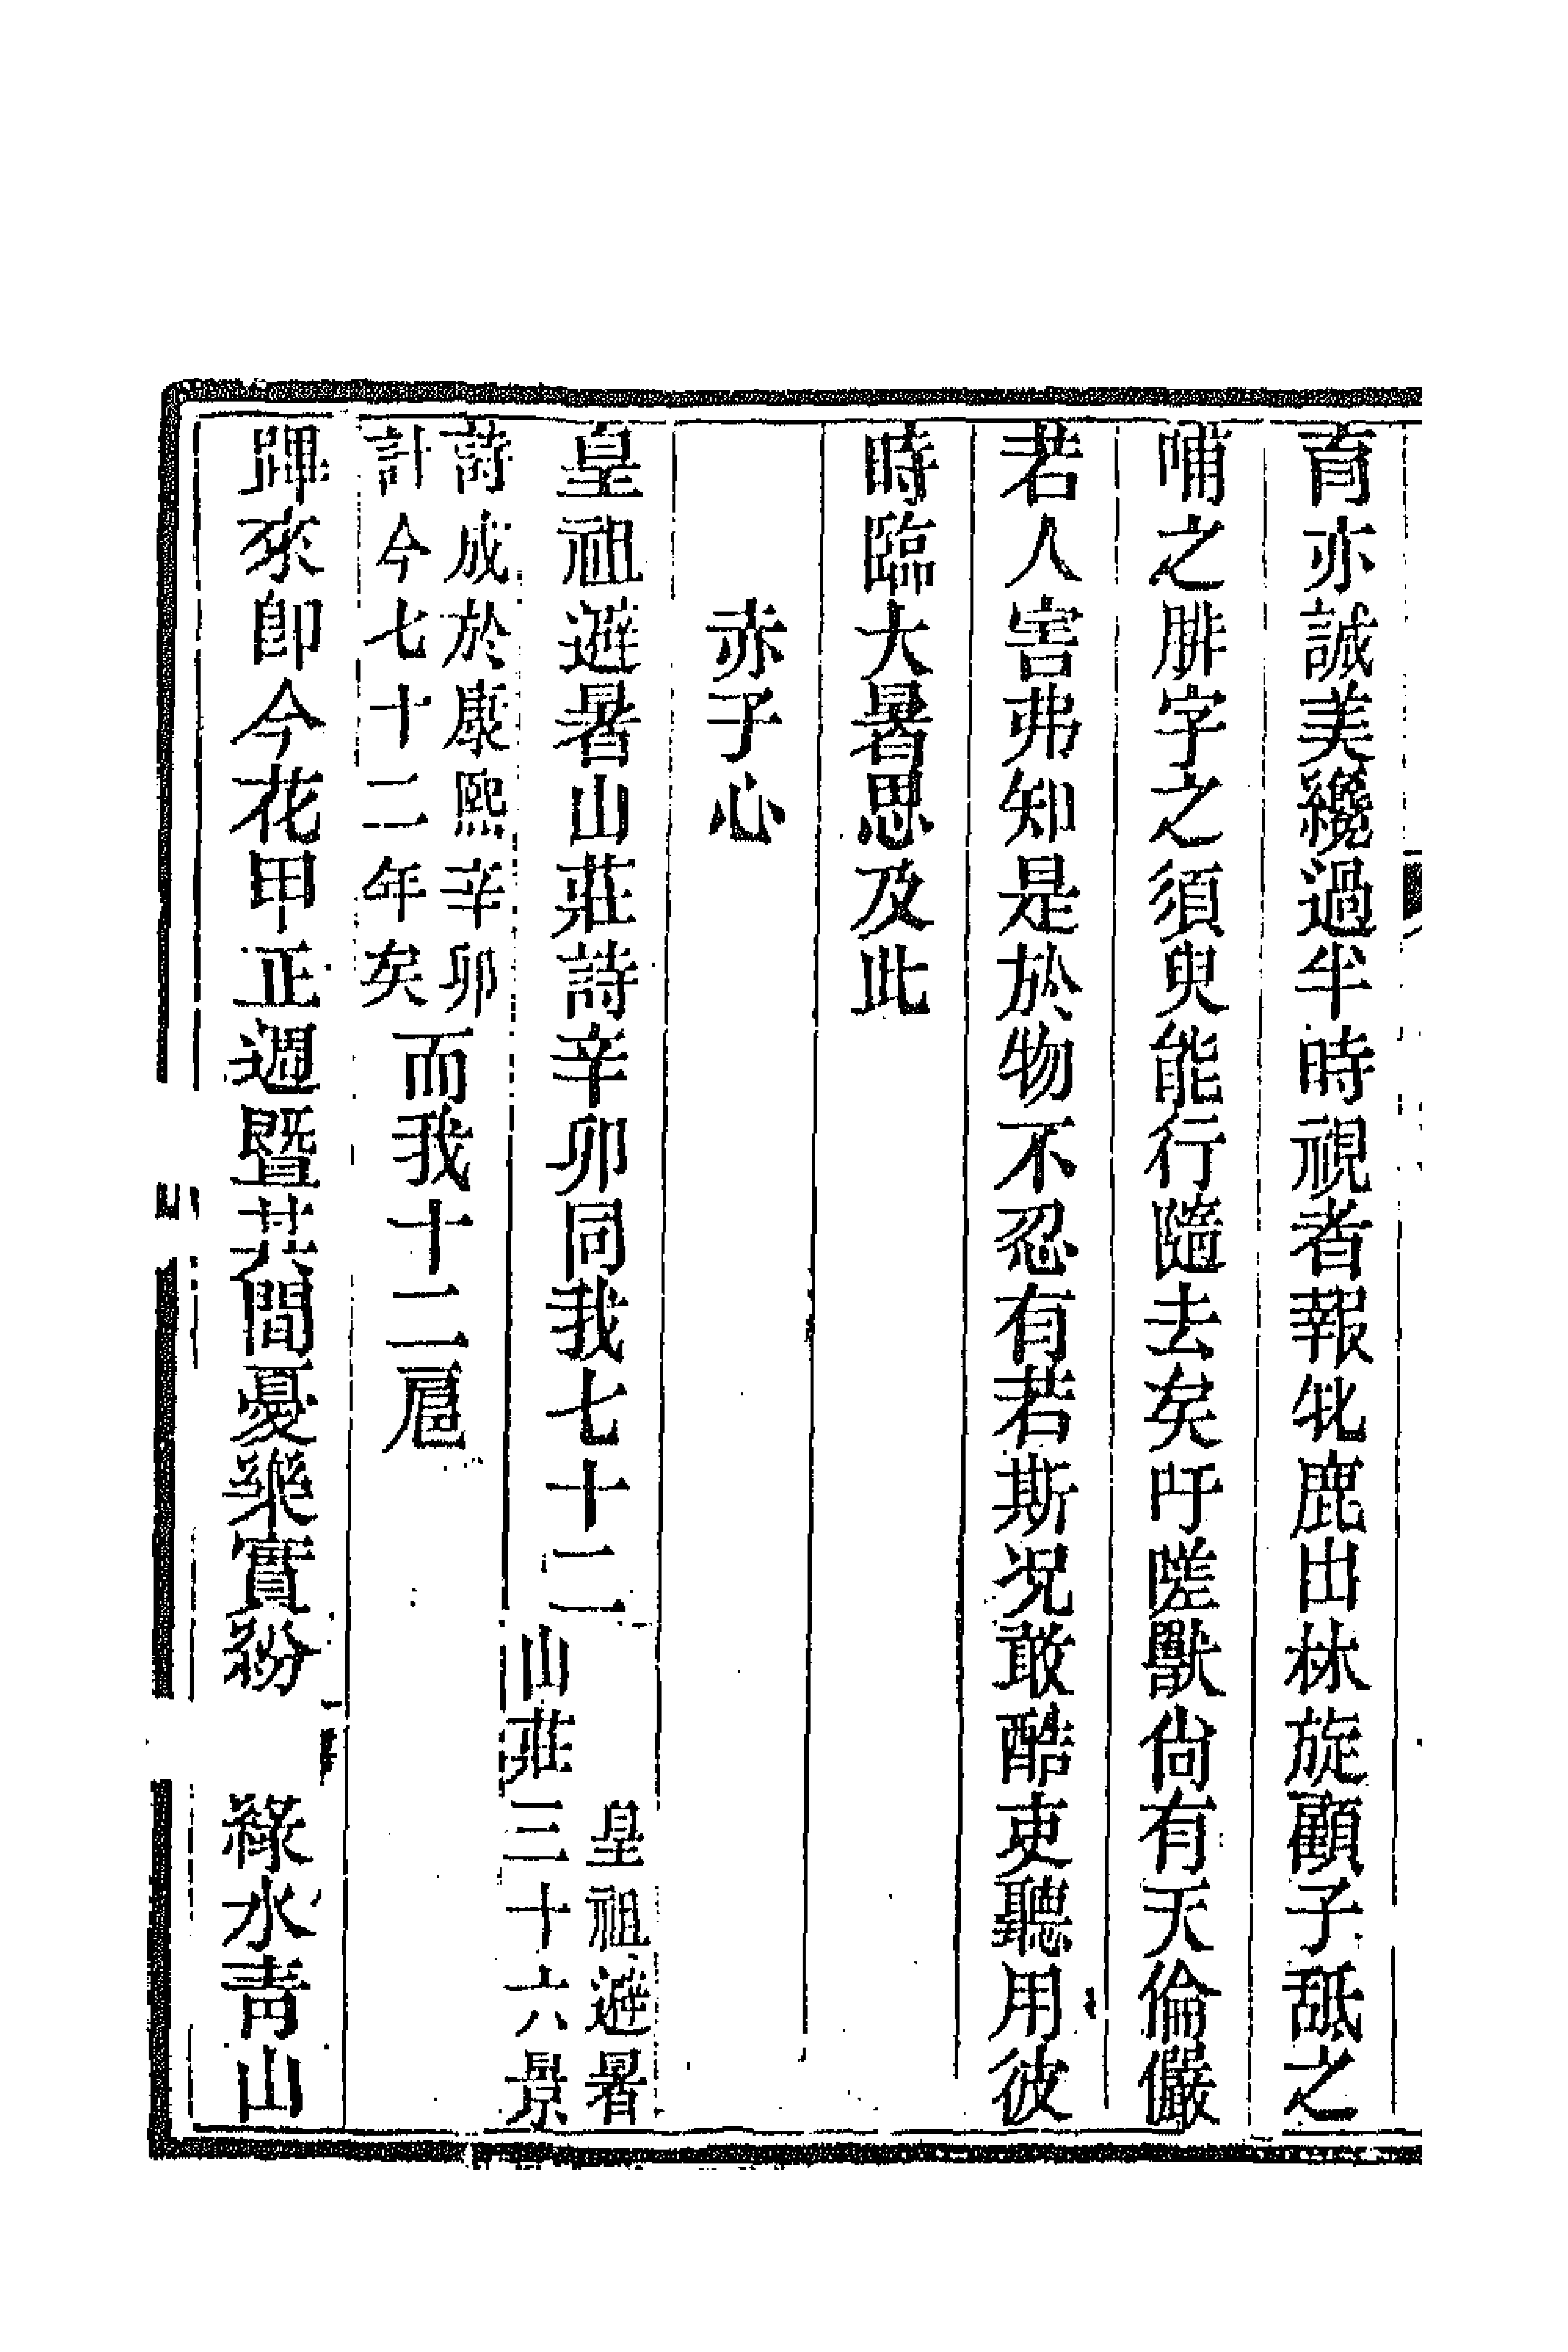 育亦誠美纔過半時視者報牝鹿出林旋顧子舐之
哺之腓字之須臾能行隨去矣吁嗟獸尙有天倫儼
若人害弗知是於物不忍有若斯况敢酷吏聽用彼
時臨大暑思及此
赤子心
皇祖避暑山莊詩辛卯同我七十二
皇祖避暑
山莊三十六景
詩成於康熙辛卯
計今七十二年矣
而我十二扈
蹕來卽今花甲正週曁其間憂樂實紛 綠水靑山